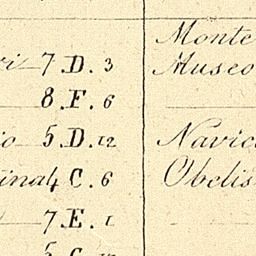 Monte
7.D. 3
Museo
8.F. 6
5.D. 12
Navic
4 C. 6
Obelis
7.E. 1